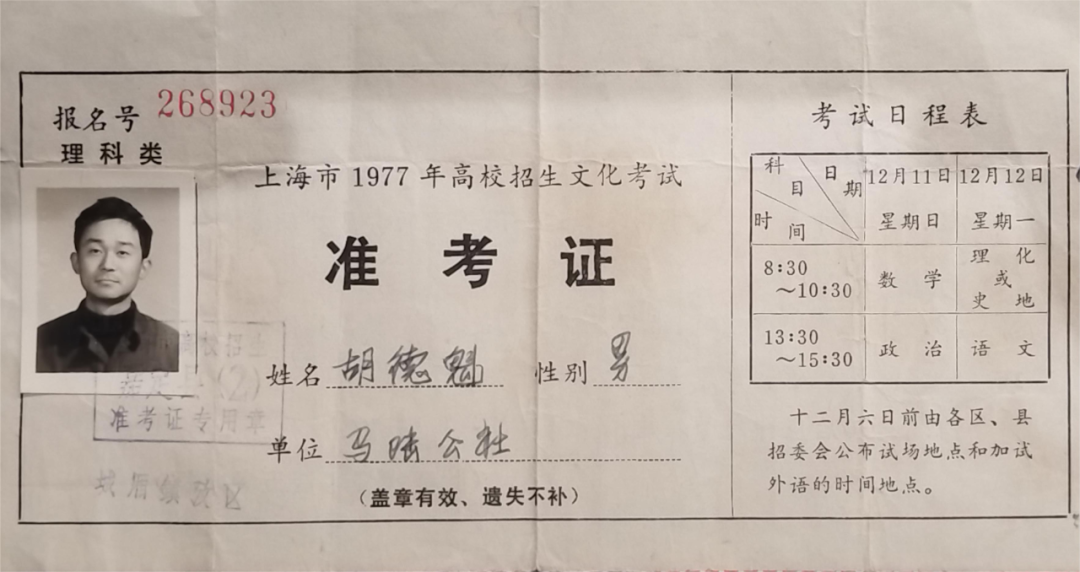 报名号 268923
理科类
上海市1977年高校招生文化考试
准考证
姓名 胡德魁 性别 男
单位 马陆公社
（盖章有效、遗失不补）
高校招生
嘉定县(2)
准考证专用章
考试日程表
科目 日期 时间
12月11日 12月12日
星期日 星期一
8:30～10:30 数学 理化或史地
13:30～15:30 政治 语文
十二月六日前由各区、县
招委会公布试场地点和加试
外语的时间地点。